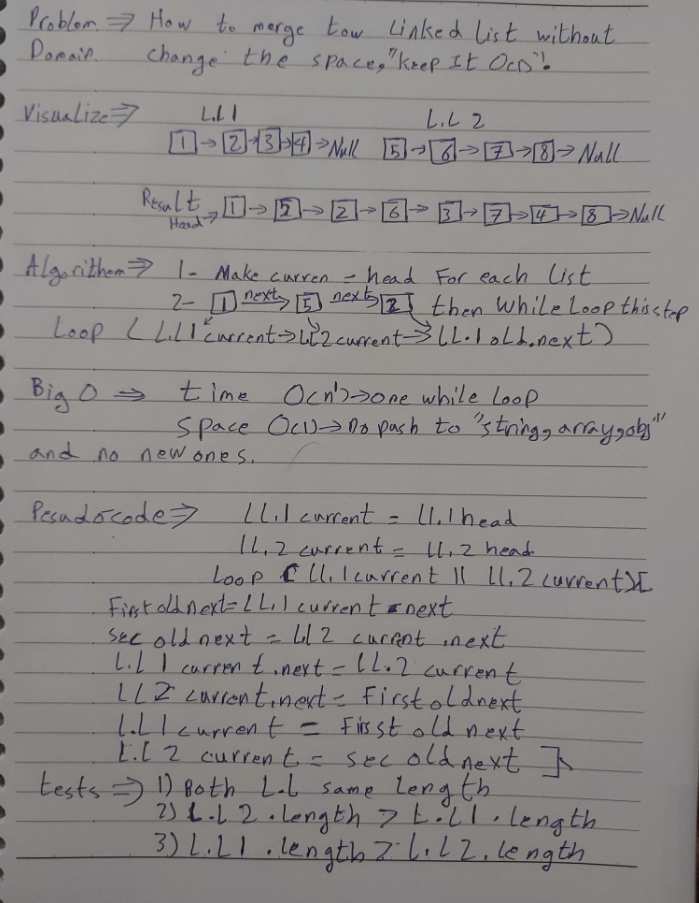 Problem ⇒ How to merge tow Linked List without
Domain. change the space, "keep It O(1)"!
Visualize ⇒ L.L 1 L.L 2
1 → 2 → 3 → 4 → Null 5 → 6 → 7 → 8 → Null
Result
Head → 1 → 5 → 2 → 6 → 3 → 7 → 4 → 8 → Null
Algorithem ⇒ 1- Make curren = head For each List
2- 1 next→ 5 next→ 2 then While Loop this step
Loop ( L.L1 current → LL2 current → LL.1 old.next )
Big O ⇒ time O(n) → one while Loop
Space O(1) → no push to "string, array, obj"
and no new ones.
Pesudocode ⇒ LL.1 current = LL.1 head
LL.2 current = LL.2 head
Loop ( LL.1 current || LL.2 current ){
First old next = LL.1 current . next
sec old next = LL2 current .next
L.L 1 current .next = LL.2 current
LL2 current.next = First old next
L.L 1 current = First old next
L.L 2 current = sec old next }
tests ⇒ 1) Both L.L same length
2) L.L 2 .length > L.L1 .length
3) L.L1 .length > L.L 2. length